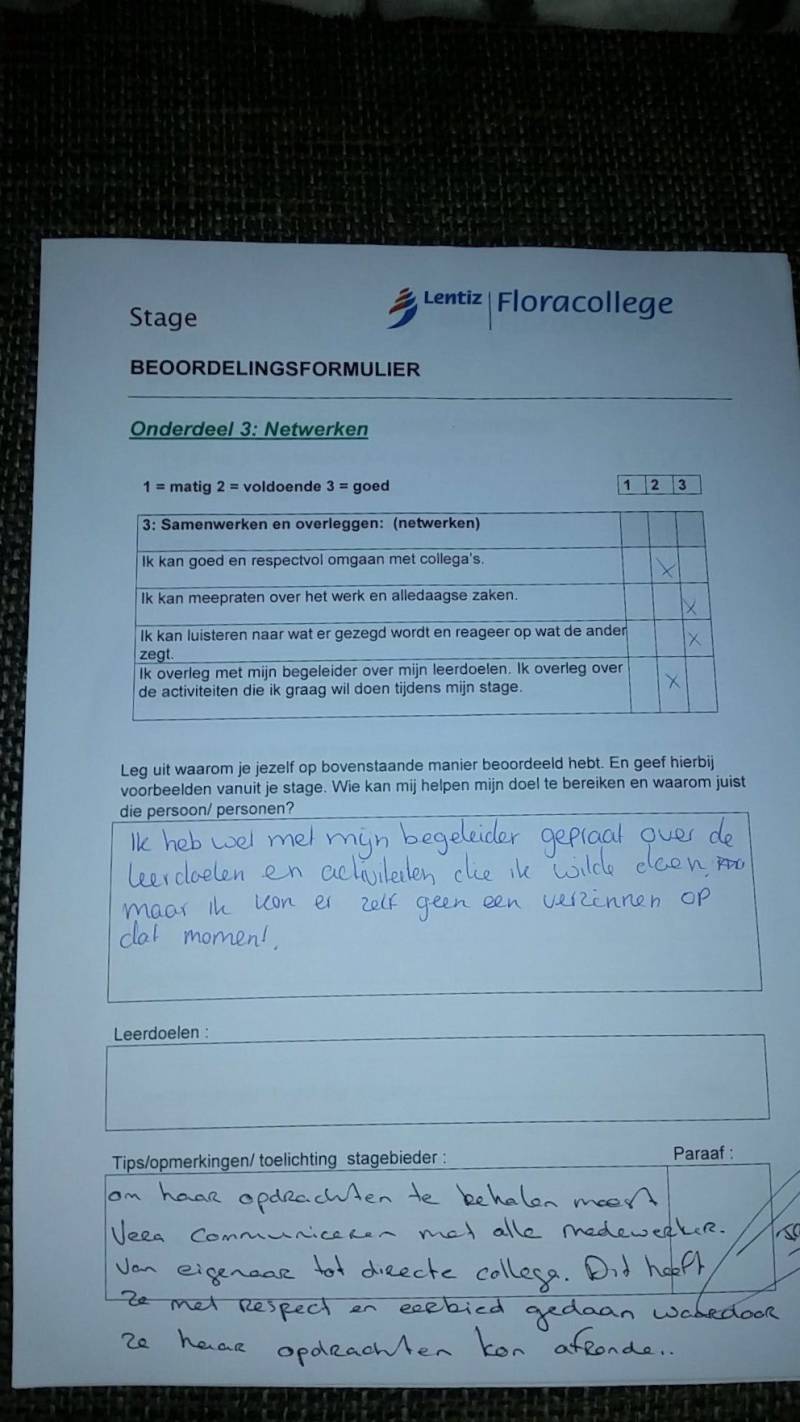 Stage
Lentiz | Floracollege
BEOORDELINGSFORMULIER
Onderdeel 3: Netwerken
1 = matig 2 = voldoende 3 = goed
1 2 3
3: Samenwerken en overleggen: (netwerken)
Ik kan goed en respectvol omgaan met collega's. X
Ik kan meepraten over het werk en alledaagse zaken. X
Ik kan luisteren naar wat er gezegd wordt en reageer op wat de ander X
zegt.
Ik overleg met mijn begeleider over mijn leerdoelen. Ik overleg over X
de activiteiten die ik graag wil doen tijdens mijn stage.
Leg uit waarom je jezelf op bovenstaande manier beoordeeld hebt. En geef hierbij
voorbeelden vanuit je stage. Wie kan mij helpen mijn doel te bereiken en waarom juist
die persoon/ personen?
Ik heb wel met mijn begeleider gepraat over de
leerdoelen en activiteiten die ik wilde doen,
maar ik kon er zelf geen een verzinnen op
dat moment.
Leerdoelen :
Tips/opmerkingen/ toelichting stagebieder :
Paraaf :
om haar opdrachten te behalen moest
Vera communiceren met alle medewerker.
Van eigenaar tot directe collega. Dit heeft
ze met respect en eerbied gedaan waardoor
ze haar opdrachten kon afronde..